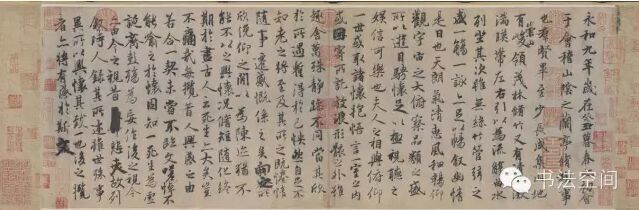 永和九年歲在癸丑暮春之初會
于會稽山陰之蘭亭脩稧事
也羣賢畢至少長咸集此地
有崇山峻領茂林脩竹又有清流激
湍暎帶左右引以為流觴曲水
列坐其次雖無絲竹管弦之
盛一觴一詠亦足以暢敘幽情
是日也天朗氣清惠風和暢仰
觀宇宙之大俯察品類之盛
所以遊目騁懷足以極視聽之
娛信可樂也夫人之相與俯仰
一世或取諸懷抱悟言一室之內
或因寄所託放浪形骸之外雖
趣舍萬殊靜躁不同當其欣
於所遇蹔得於己怏然自足不
知老之將至及其所之既惓情
隨事遷感慨係之矣向之所
欣俛仰之閒以為陳迹猶不
能不以之興懷況脩短隨化終
期於盡古人云死生亦大矣豈
不痛哉每攬昔人興感之由
若合一契未嘗不臨文嗟悼不
能喻之於懷固知一死生為虛
誕齊彭殤為妄作後之視今
亦由今之視昔悲夫故列
敘時人錄其所述雖世殊事
異所以興懷其致一也後之攬
者亦將有感於斯文
书法空间